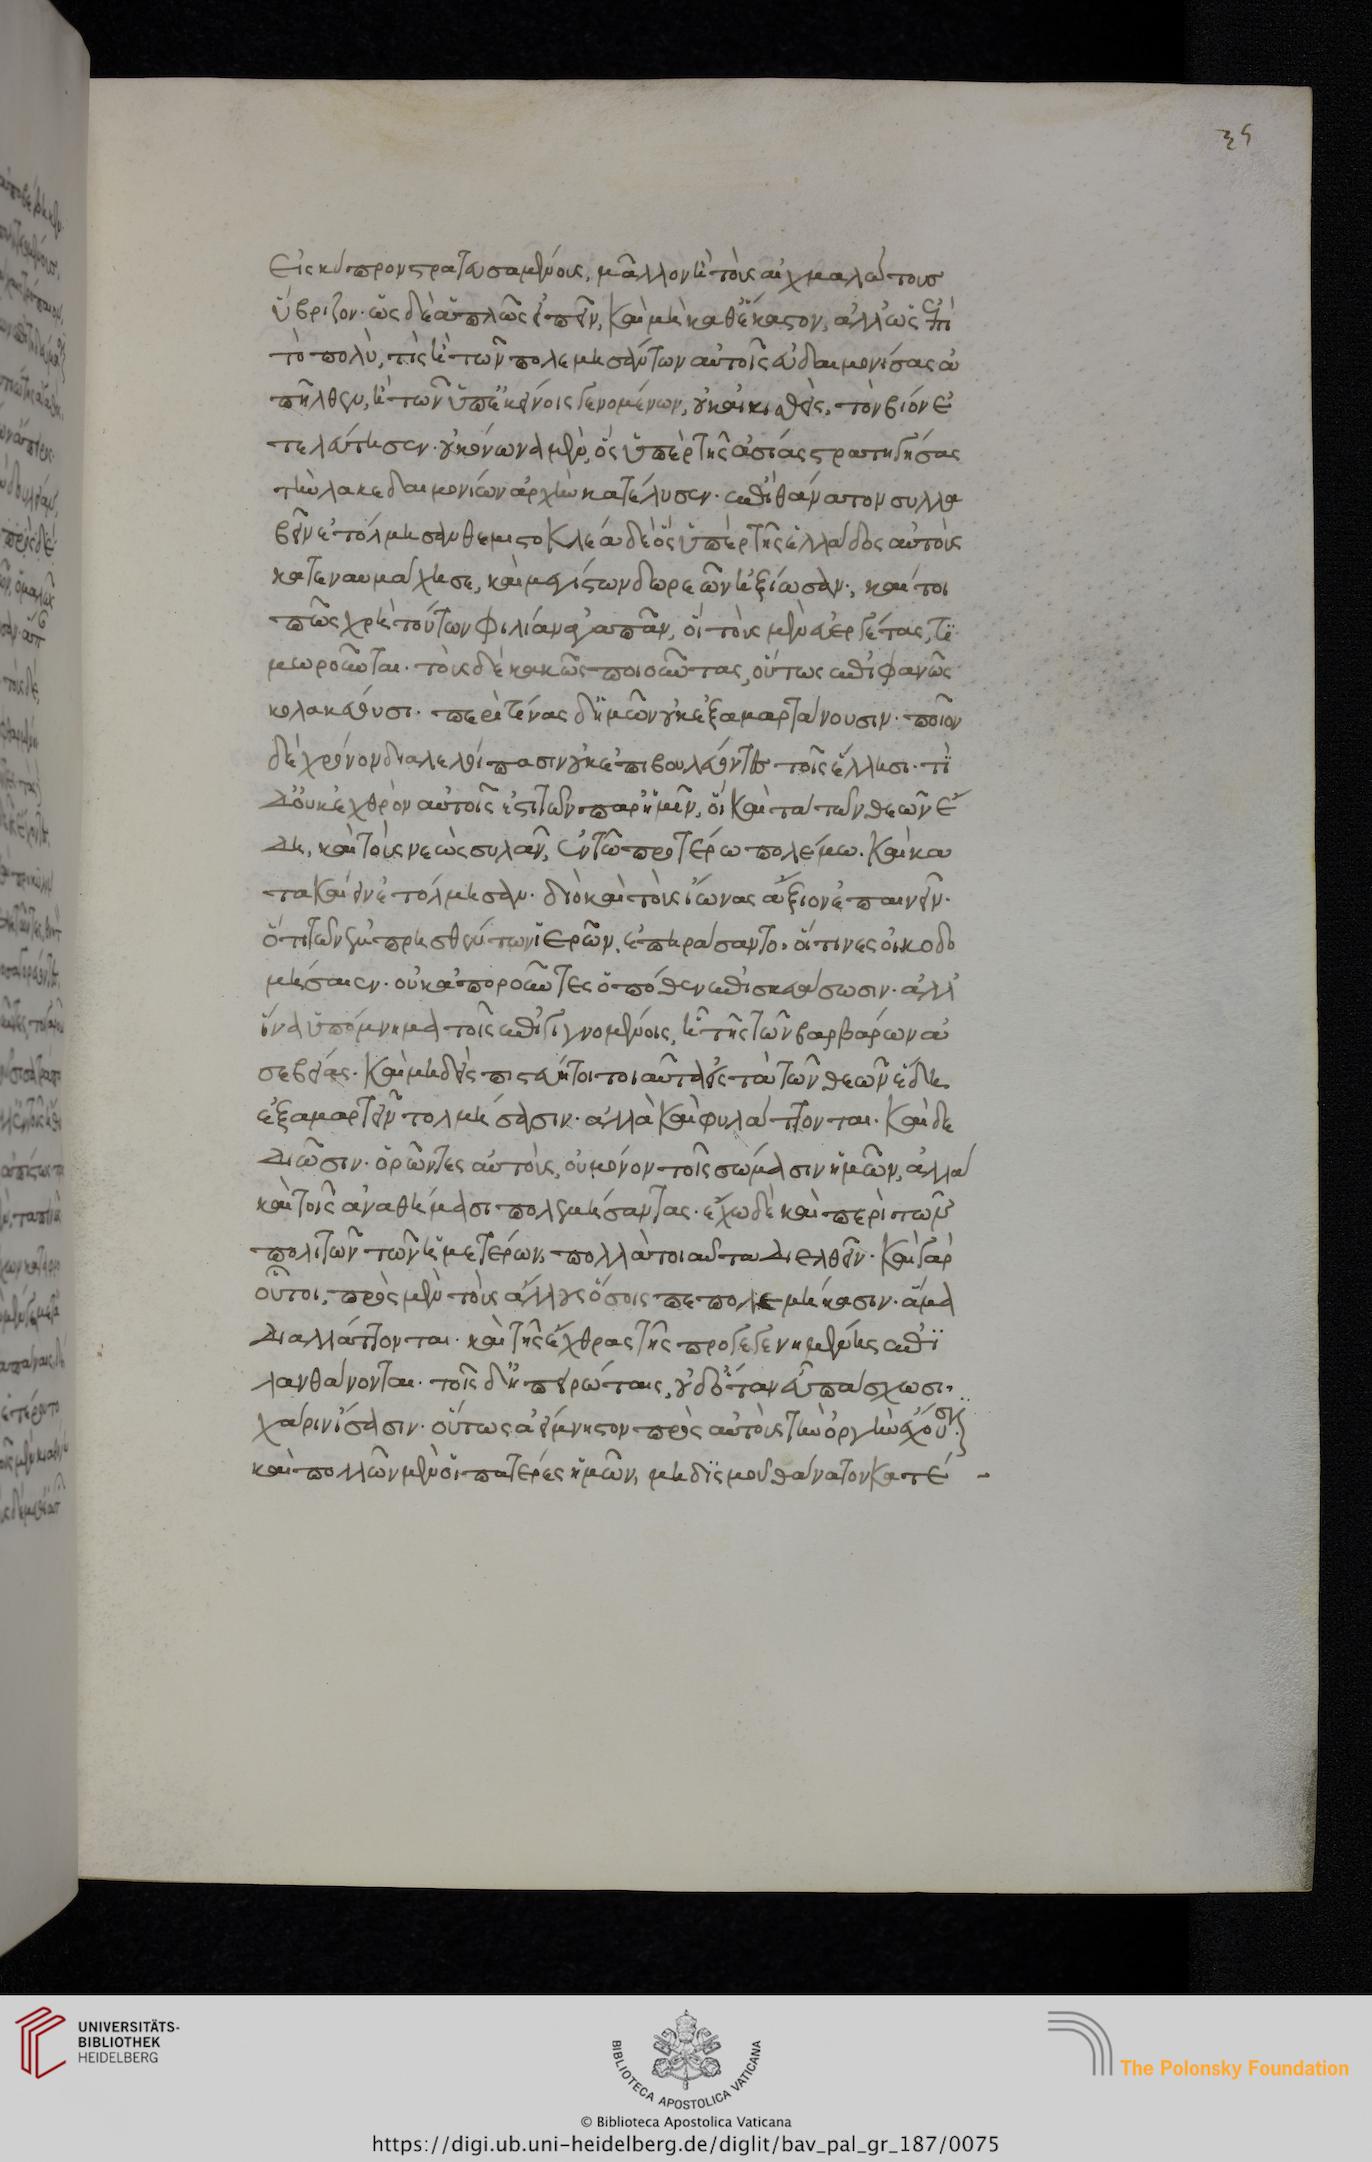 35
Εἰς κύπρον στρατευσαμένοις, μᾶλλον ἢ τοὺς αἰχμαλώτους
ὕβριζον· ὡς δὲ ἁπλῶς εἰπεῖν, καὶ μὴ καθ' ἕκαστον, ἀλλ' ὡς ἐπὶ
τὸ πολὺ, τίς ἢ τῶν πολεμησάντων αὐτοῖς εὐδαιμονίσας ἀ
πῆλθεν, ἢ τῶν ὑπ' ἐκείνοις γενομένων, οὐκ αἰκισθεὶς, τὸν βίον ἐ
τελεύτησεν· οὐ κόνωνα μὲν, ὃς ὑπὲρ τῆς ἀσίας στρατηγήσας
τὴν λακεδαιμονίων ἀρχὴν κατέλυσεν· ἐπὶ θάνατον συλλα
βεῖν ἐτόλμησαν θεμιστοκλέα δὲ ὃς ὑπὲρ τῆς ἑλλάδος αὐτοὺς
κατεναυμάχησε, καὶ μεγίστων δωρεῶν ἠξίωσαν· καί τοι
πῶς χρὴ τούτων φιλίαν ἀγαπᾶν, οἳ τοὺς μὲν εὐεργέτας, τι
μωροῦνται· τοὺς δὲ κακῶς ποιοῦντας, οὕτως ἐπιφανῶς
κολακεύουσι· περὶ τίνας δ' ἡμῶν οὐκ ἐξαμαρτάνουσιν· ποῖον
δὲ χρόνον διαλελοίπασιν οὐκ ἐπιβουλεύοντες τοῖς ἕλλησι· τί
δ' οὐκ ἐχθρὸν αὐτοῖς ἐστι τῶν παρ' ἡμῖν, οἳ καὶ τὰ τῶν θεῶν ἕ
δη, καὶ τοὺς νεὼς συλᾶν, ἐν τῶ προτέρω πολέμω. καὶ κα
τακαίειν ἐτόλμησαν· διὸ καὶ τοὺς ἴωνας ἄξιον ἐπαινεῖν·
ὅτι τῶν ἐμπρησθέντων ἱερῶν, ἐπηράσαντο· εἴ τινες οἰκοδο
μήσαιεν· οὐκ ἀποροῦντες ὁπόθεν ἐπισκευάσωσιν· ἀλλ'
ἵνα ὑπόμνημα τοῖς ἐπιγιγνομένοις, ἦ τῆς τῶν βαρβάρων ἀ
σεβείας· καὶ μηδεὶς πιστεύη τοι τοιαῦτα εἰς τὰ τῶν θεῶν ἕδη
ἐξαμαρτεῖν τολμήσασιν· ἀλλὰ καὶ φυλάττονται· καὶ δε
διῶσιν· ὁρῶντες αὐτοὺς, οὐ μόνον τοῖς σώμασιν ἡμῶν, ἀλλὰ
καὶ τοῖς ἀναθήμασι πολεμήσαντας· ἔχω δὲ καὶ περὶ τῶν
πολιτῶν τῶν ἡμετέρων, πολλὰ τοιαῦτα διελθεῖν· καὶ γὰρ
οὗτοι, πρὸς μὲν τοὺς ἄλλους ὅσοις πεπολεμήκασιν· ἅμα
διαλλάττονται· καὶ τῆς ἔχθρας τῆς προγεγενημένης ἐπι
λανθάνονται· τοῖς δ' ἠπειρώταις, οὐδ' ὅταν εὖ πάσχωσι·
χάριν ἴσασιν· οὕτως ἀείμνηστον πρὸς αὐτοὺς τὴν ὀργὴν ἔχουσιν·
καὶ πολλῶν μὲν οἱ πατέρες ἡμῶν, μηδισμοῦ θάνατον κατέ
UNIVERSITÄTS-
BIBLIOTHEK
HEIDELBERG
BIBLIOTECA APOSTOLICA VATICANA
The Polonsky Foundation
© Biblioteca Apostolica Vaticana
https://digi.ub.uni-heidelberg.de/diglit/bav_pal_gr_187/0075